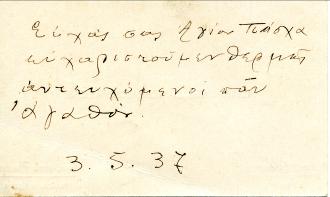 Εὐχάς σας Ἁγίου Πάσχα
εὐχαριστοῦμεν θερμῶς
ἀντευχόμενοι πᾶν
ἀγαθόν.
3.5.37